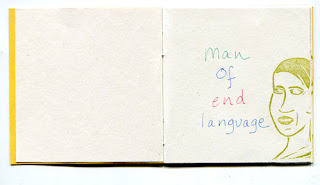 man
of
end
language